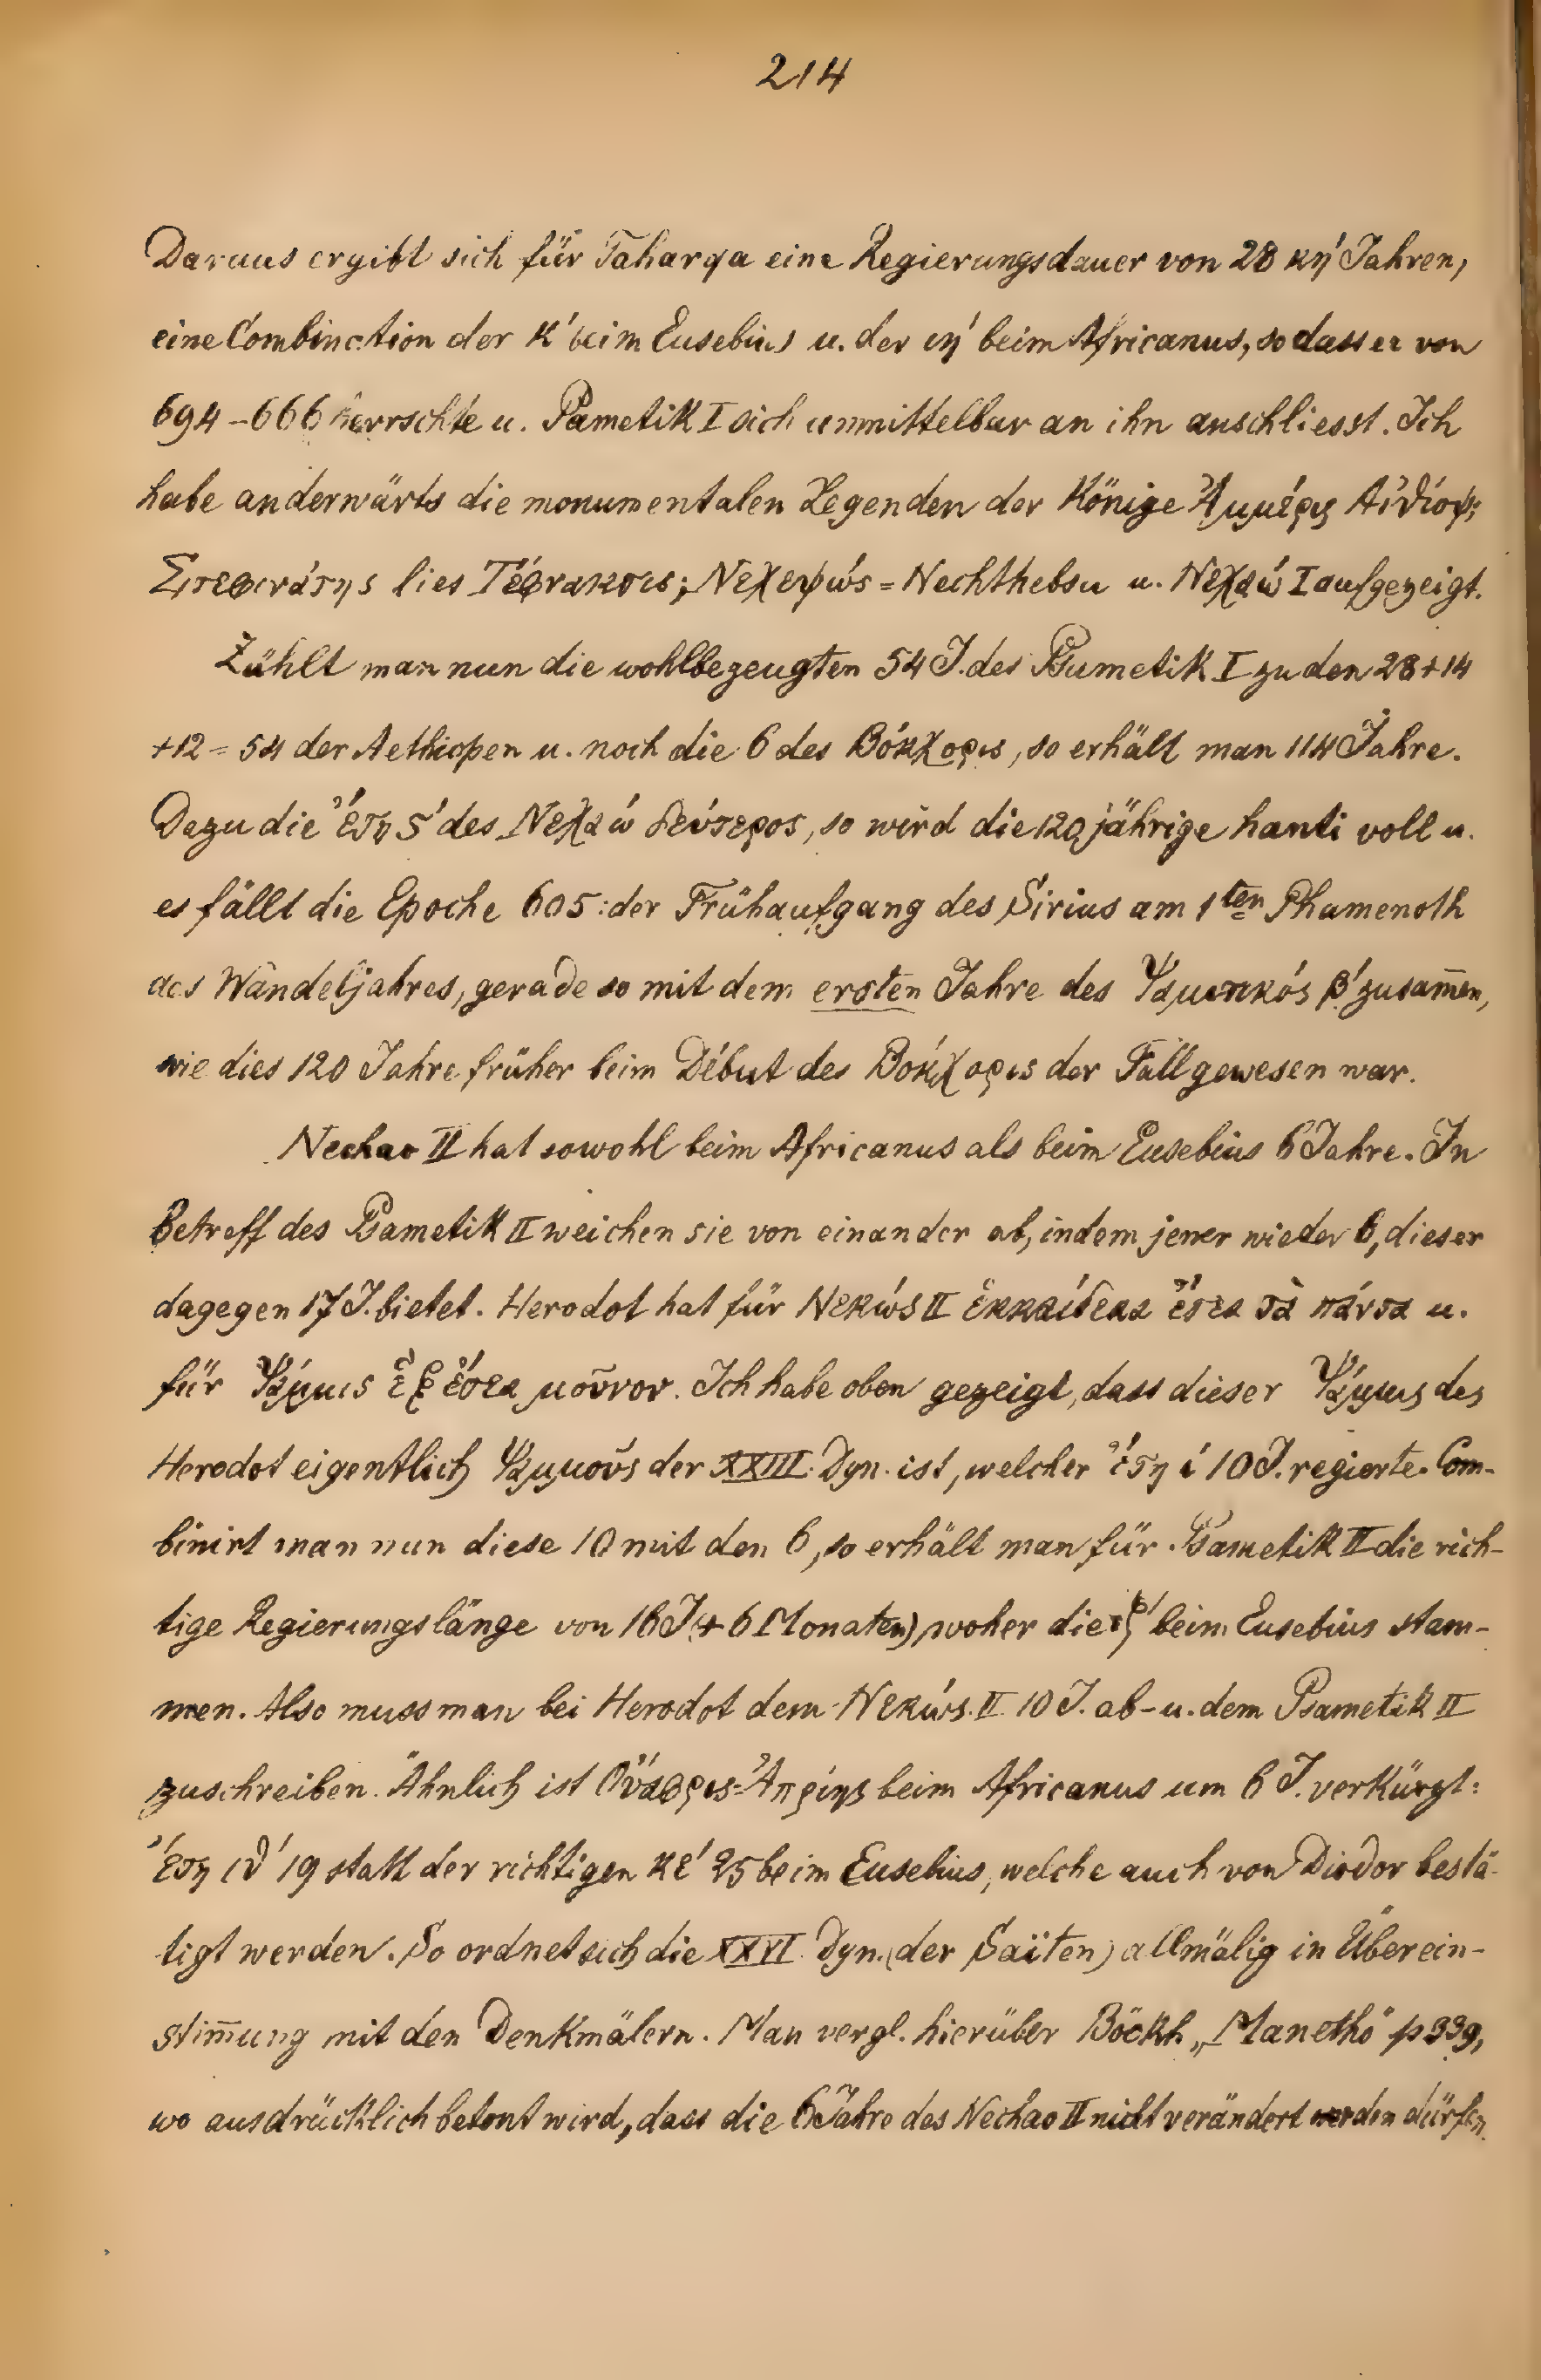 214
Daraus ergibt sich für Taharqa eine Regierungsdauer von 28 κη' Jahren,
eine Combination der κ' beim Eusebius u. der ιη' beim Africanus, so dass er von
694–666 herrschte u. Psametik I sich unmittelbar an ihn anschliesst. Ich
habe anderwärts die monumentalen Legenden der Könige Ἀμμέρις Αἰθίοψ;
Στεφινάτης lies Τέφνακτις; Νεχεψώς = Nechthebsu u. Νεχαώ I aufgezeigt.
Zählt man nun die wohlbezeugten 54 J. des Psametik I zu den 28+14
+12 = 54 der Aethiopen u. noch die 6 des Βόκχορις, so erhält man 114 Jahre.
Dazu die ἔτη ς' des Νεχαώ δεύτερος, so wird die 120 jährige hanti voll u.
es fällt die Epoche 605: der Frühaufgang des Sirius am 1ten Phamenoth
des Wandeljahres, gerade so mit dem ersten Jahre des Ψαμιτικός β' zusam̄en,
wie dies 120 Jahre früher beim Début des Βόκχορις der Fall gewesen war.
Nechao II hat sowohl beim Africanus als beim Eusebius 6 Jahre. In
Betreff des Psametik II weichen sie von einander ab, indem jener wieder 6, dieser
dagegen 17 J. bietet. Herodot hat für Νεκώς II ἑκκαίδεκα ἔτεα τὰ πάντα u.
für Ψάμμις ἓξ ἔτεα μοῦνον. Ich habe oben gezeigt, dass dieser Ψάμμις des
Herodot eigentlich Ψαμμοῦς der XXIII. Dyn. ist, welcher ἔτη ί 10 J. regierte. Com-
binirt man nun diese 10 mit den 6, so erhält man für Psametik II die rich-
tige Regierungslänge von 16 J (+ 6 Monaten) woher die ιζ' beim Eusebius stam-
men. Also muss man bei Herodot dem Νεκώς II 10 J. ab- u. dem Psametik II
zuschreiben. Ähnlich ist Οὔαφρις-Ἀπρίης beim Africanus um 6 J. verkürzt:
ἔτη ιθ' 19 statt der richtigen κε' 25 beim Eusebius, welche auch von Diodor bestä-
tigt werden. So ordnet sich die XXVI. Dyn. (der Saïten) allmälig in Überein-
stim̄ung mit den Denkmälern. Man vergl. hierüber Böckh „Manetho“ p 339,
wo ausdrücklich betont wird, dass die 6 Jahre des Nechao II nicht verändert werden dürfen.